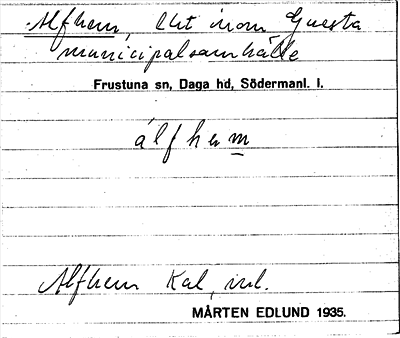 Alfhem, lht inom Gnesta
municipalsamhälle
Frustuna sn, Daga hd, Södermanl. l.
álfhem
Alfhem Kal, inl.
MÅRTEN EDLUND 1935.